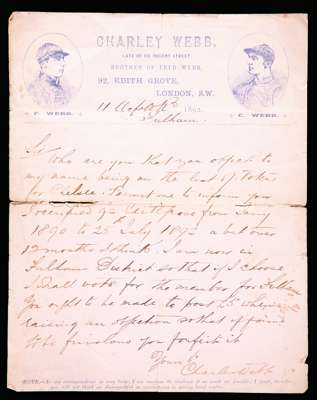 CHARLEY WEBB,
LATE OF 110 REGENT STREET
BROTHER OF FRED WEBB.
92, EDITH GROVE,
LONDON, S.W.
11 189
Fulham.
C. WEBB.
C. WEBB.
Sir Who are you that you object to
my name being on the list of Votes
for Chelsea. Permit me to inform you
I occupied 92 Edith Grove from Jany
1890 to 25 July 189 a bit over
12 months I think. I am now in
Fulham District so that if I choose
I shall vote for the member for Fulham
You ought to be made to pay £5 when
raising an objection so that if found
to be frivolous you forfeit it
Yours
Charles Webb
NOTE.